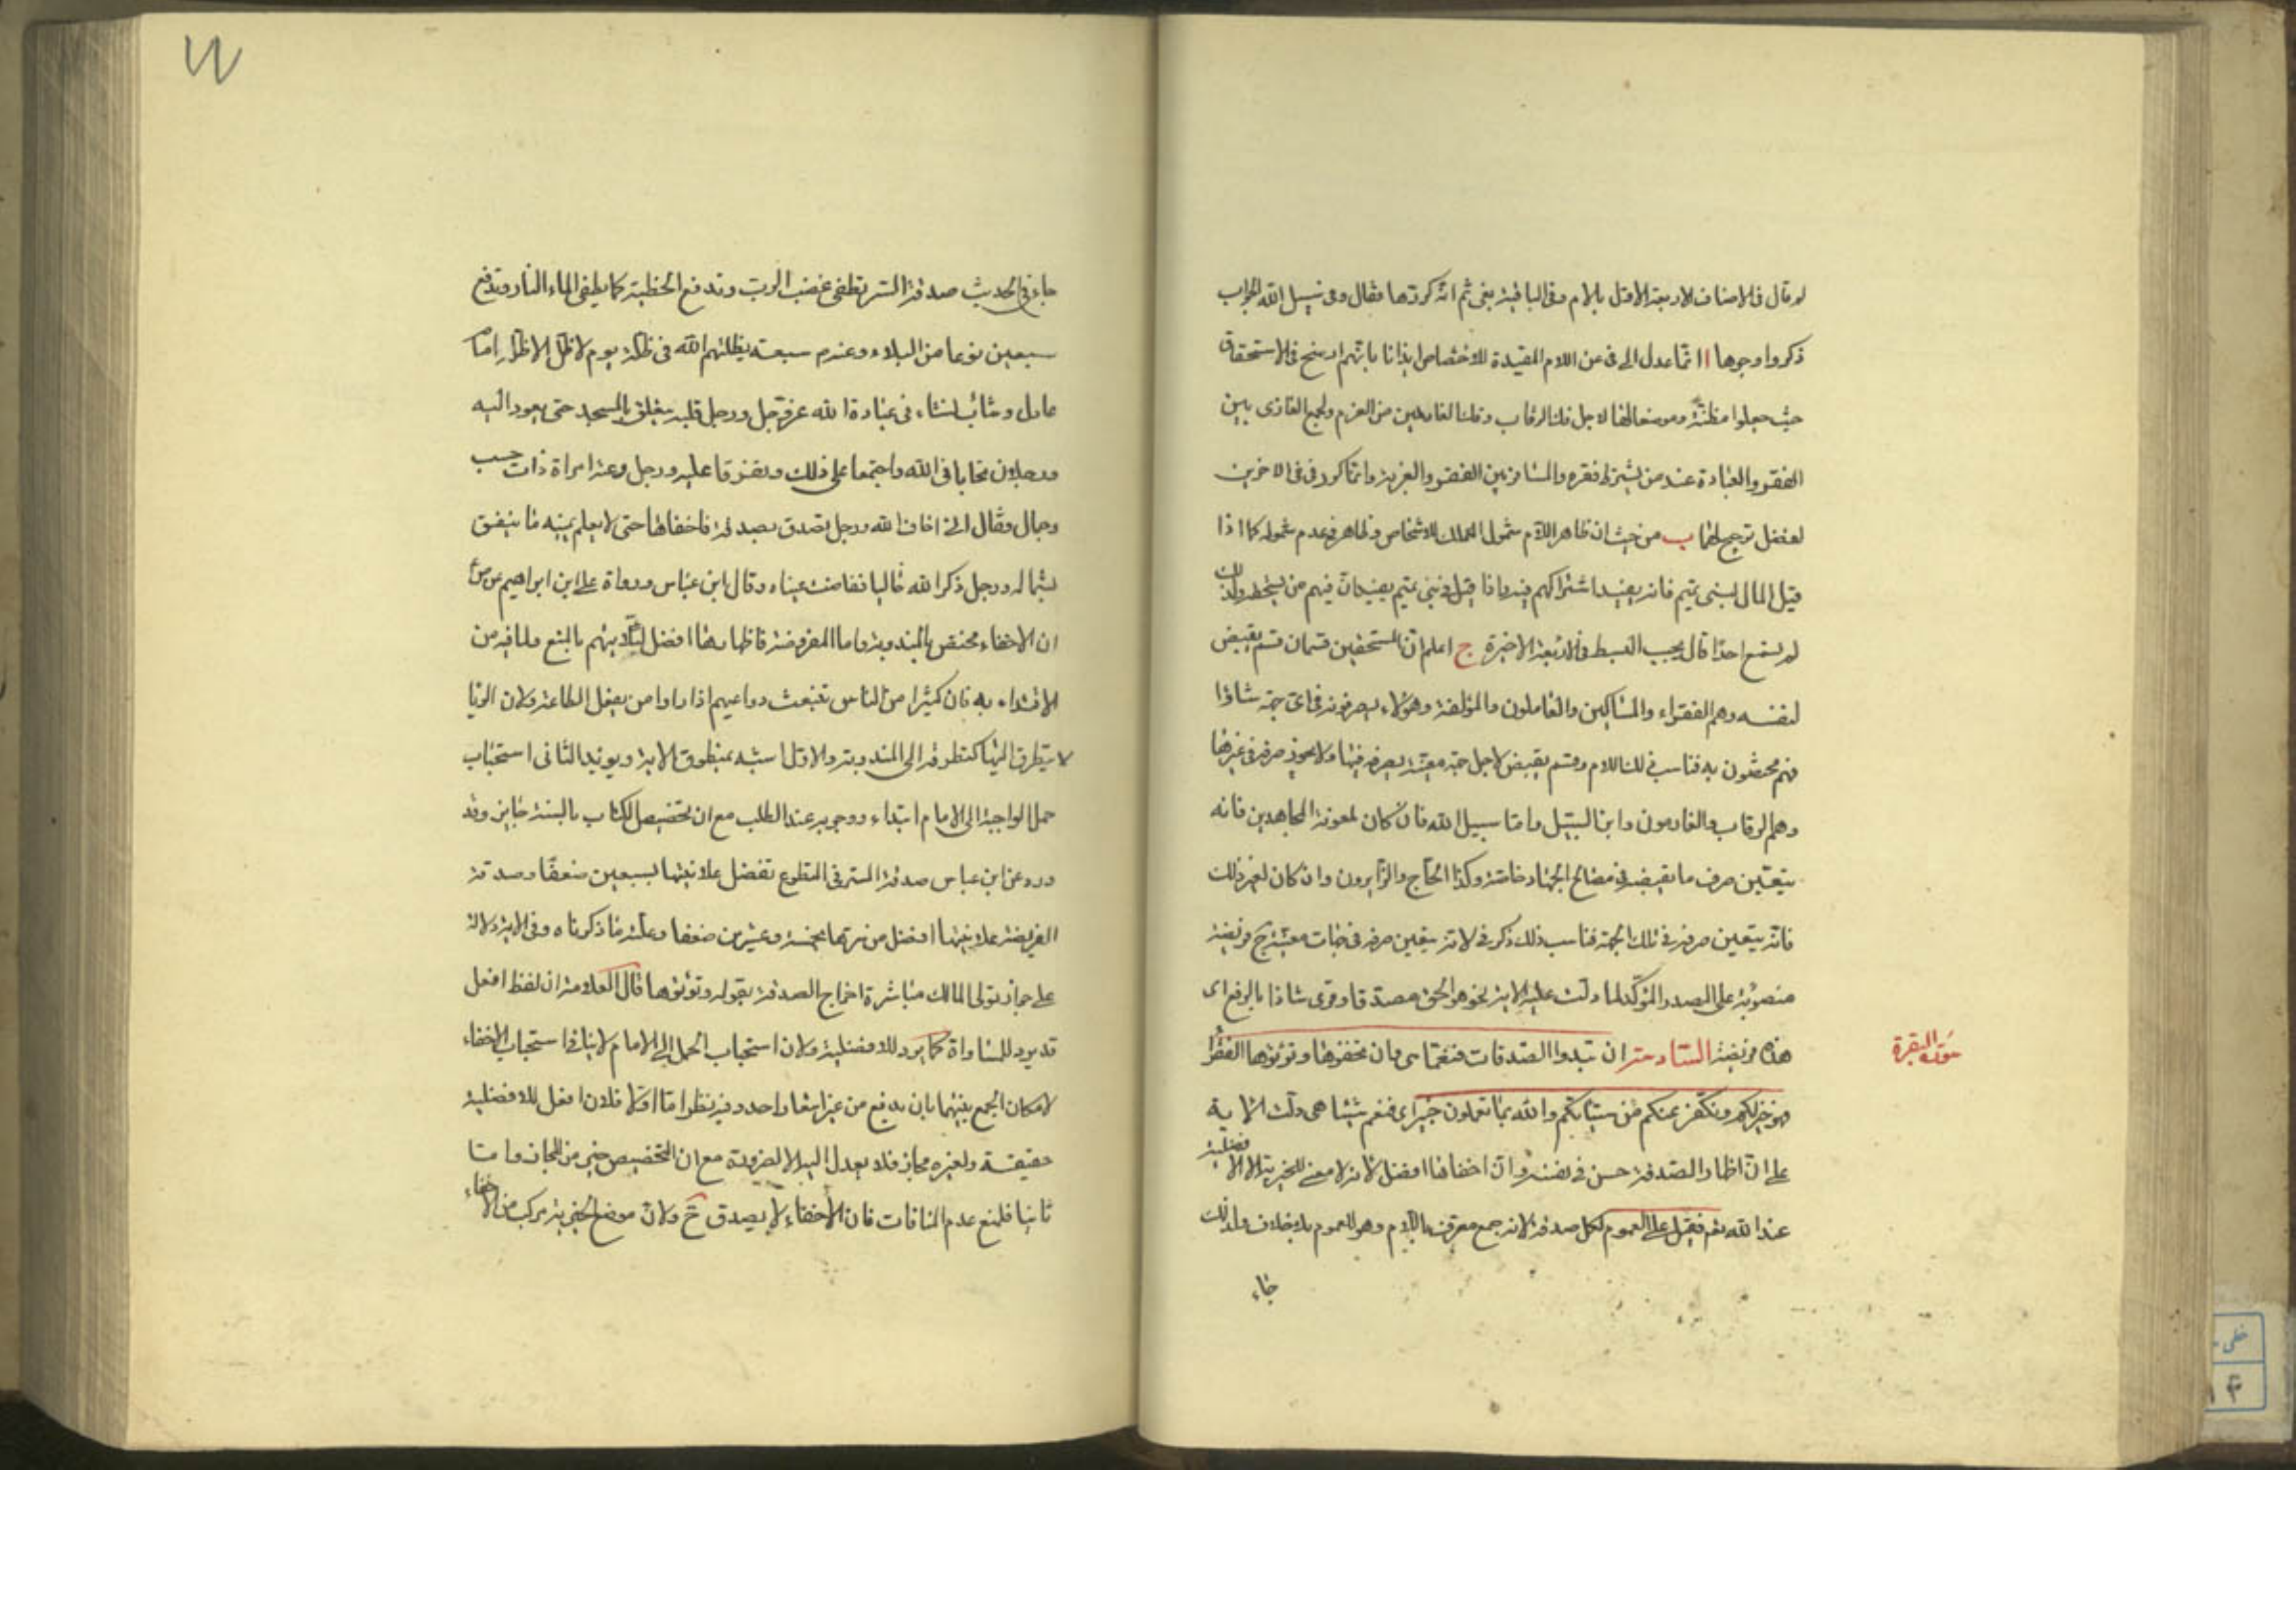 لم قال فى الاصناف الاربعة الاول باللام وفى الباقية بفى ثم انه كررها فقال وفى سبيل الله الجواب
ذكروا وجوها ا انما عدل الى فى عن اللام المفيدة للاختصاص ايذانا بانهم ارسخ فى الاستحقاق
حيث جعلوا مظنة وموضعا لها لاجل فك الرقاب وفك الغارمين من الغرم ولجمع الغازى بين
الفقر والعبادة عند من يشترط فقره والمسافر بين الفقر والغربة وانما كرر فى فى الاخرين
لفضل ترجيح لهما ب من حيث ان ظاهر اللام شمول الملك للاشخاص وظاهر فى عدم شموله كما اذا
قيل المال لبنى تميم فانه يفيد اشتراكهم فيه واذا قيل فى بنى تميم يفيد ان فيهم من يستحقه ولذلك
لم يسمع احدا قال يجب البسط فى الاربعة الاخيرة ج اعلم ان المستحقين قسمان قسم يقبض
لنفسه وهم الفقراء والمساكين والعاملون والمؤلفة وهؤلاء يصرفونه فى اى جهة شاؤا
فهم مختصون به فناسب ذلك اللام وقسم يقبض لاجل جهة معينة يصرفه فيها ولا يجوز صرفه فى غيرها
وهم الرقاب والغارمون وابن السبيل واما سبيل الله فان كان لمعونة المجاهدين فانه
يتعين صرف ما يقبضه فى مصالح الجهاد خاصة وكذا الحاج والزايرون وان كان لغير ذلك
فانه يتعين صرفه فى تلك الجهة فناسب ذلك ذكر فى لانه يتعين صرفه فى جهات معينة ج فريضة
منصوبة على المصدر المؤكد لما دلت عليه الاية نحو هو الحق مصدقا وقرى شاذا بالرفع اى
هذه فريضة السادسة ان تبدوا الصدقات فنعما هى وان تخفوها وتؤتوها الفقراء
سورة البقرة
فهو خير لكم ونكفر عنكم من سيئاتكم والله بما تعملون خبير اى فنعم شيئا هى دلت الاية
على ان اظهار الصدقة حسن فى نفسه وان اخفاها افضل لانه لا معنى للخيرية الا الافضلية
عند الله نعم فقيل على العموم لكل صدقة لانه جمع معرف باللام وهو للعموم بلا خلاف ولذلك
جاء
جاء فى الحديث صدقة السر تطفى غضب الرب وتدفع الخطيئة كما يطفى الماء النار وتدفع
سبعين نوعا من البلاء وعنهم سبعة يظلهم الله فى ظله يوم لا ظل الا ظله امام
عادل وشاب نشاء فى عبادة الله عز وجل ورجل قلبه معلق بالمسجد حتى يعود اليه
ورجلان تحابا فى الله واجتمعا على ذلك وتفرقا عليه ورجل دعته امراة ذات حسب
وجمال فقال انى اخاف الله ورجل تصدق بصدقة فاخفاها حتى لا يعلم يمينه ما ينفق
بشماله ورجل ذكر الله خاليا ففاضت عيناه وقال ابن عباس ورواه على ابن ابراهيم عن ص
ان الاخفاء مختص بالمندوبة واما المفروضة فاظهارها افضل لئلا يتهم بالمنع ولما فيه من
الاقتداء به فان كثيرا من الناس تنبعث دواعيهم اذا راوا من يفعل الطاعة ولان الريا
لا يتطرق اليها كتطرقه الى المندوبة والاول اشبه بمنطوق الاية ويؤيد الثانى استحباب
حمل الواجبة الى الامام ابتداء ووجوبه عند الطلب مع ان تخصيص الكتاب بالسنة جايز وقد
ورد عن ابن عباس صدقة السر فى التطوع تفضل علانيتها بسبعين ضعفا وصدقة
الفريضة علانيتها افضل من سرها بخمسة وعشرين ضعفا وعلته ما ذكرناه وفى الاية دلالة
على جواز تولى المالك مباشرة اخراج الصدقة بقوله وتؤتوها قال العلامة ان لفظ افعل
قد يرد للمساواة كما يرد للافضلية ولان استحباب الحمل الى الامام لا ينافى استحباب الاخفاء
لامكان الجمع بينهما بان يدفع من غير اشعار احد وفيه نظر اما اولا فلان افعل للافضلية
حقيقة ولغيره مجاز فلا يعدل اليه الا لضرورة مع ان التخصيص خير من المجاز واما
ثانيا فلمنع عدم المنافات فان الاخفاء لا يصدق ح ولان موضع الخيرية مركب من الاخفاء